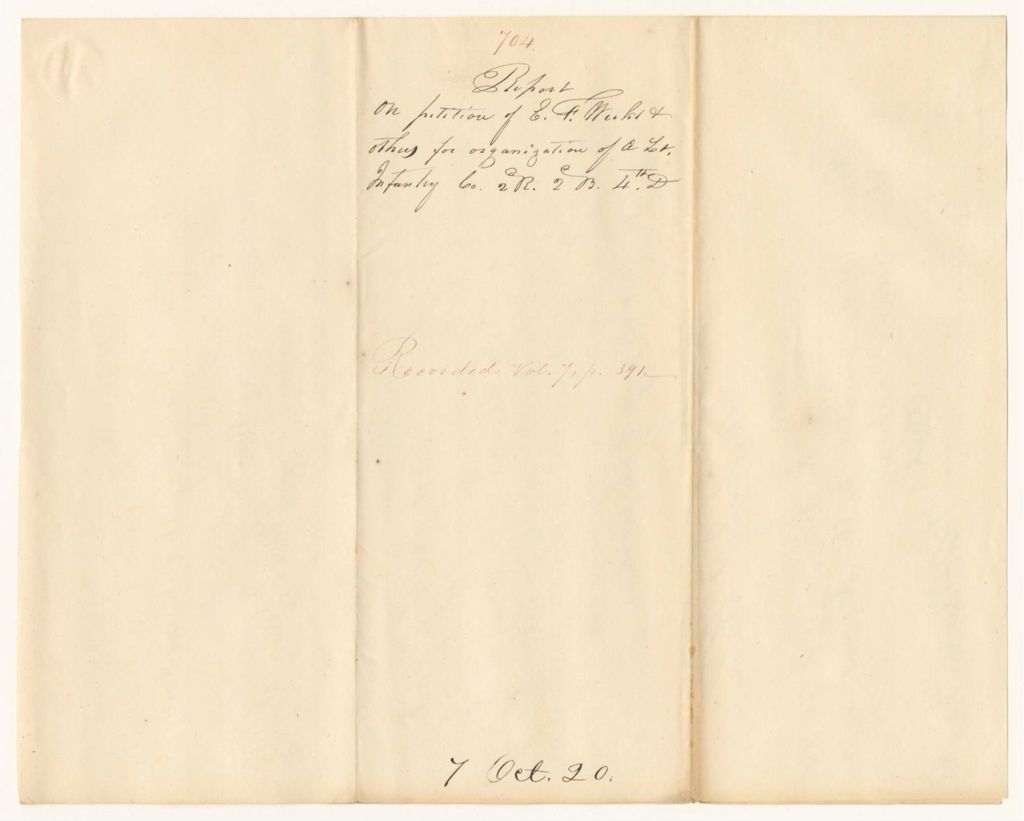 704.
Report
On petition of E. F. Weeks &
others for organization of a Lt.
Infantry Co. 2d R. 2d B. 4th D
Recorded Vol. 7, p. 391
7 Oct. 20.